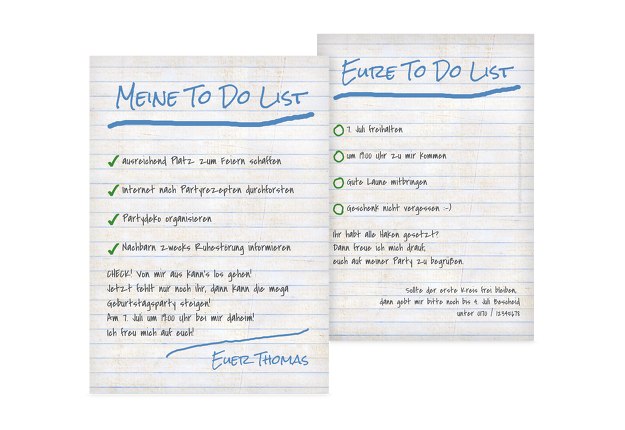 Meine To Do List
ausreichend Platz zum Feiern schaffen
Internet nach Partyrezepten durchforsten
Partydeko organisieren
Nachbarn zwecks Ruhestörung informieren
CHECK! Von mir aus kann's los gehen!
Jetzt fehlt nur noch ihr, dann kann die mega
Geburtstagsparty steigen!
Am 7. Juli um 19:00 Uhr bei mir daheim!
Ich freu mich auf euch!
Euer Thomas
Eure To Do List
7. Juli freihalten
um 19:00 Uhr zu mir kommen
Gute Laune mitbringen
Geschenk nicht vergessen :-)
Ihr habt alle Haken gesetzt?
Dann freue ich mich drauf,
euch auf meiner Party zu begrüßen.
Sollte der erste Kreis frei bleiben,
dann gebt mir bitte noch bis 4. Juli Bescheid
unter 0170 / 12345678